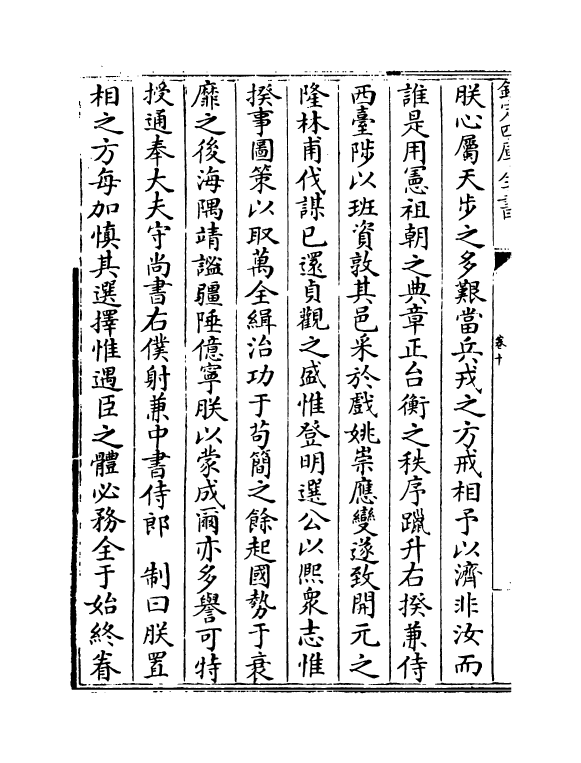 欽定四庫全書
卷十
朕心屬天步之多艱當兵戎之方戒相予以濟非汝而
誰是用憲祖朝之典章正台衡之秩序躐升右揆兼侍
西臺陟以班資敦其邑采於戲姚崇應變遂致開元之
隆林甫伐謀已還貞觀之盛惟登明選公以熙衆志惟
揆事圖策以取萬全緝治功于苟簡之餘起國勢于衰
靡之後海隅靖謐疆陲億寧朕以蒙成爾亦多譽可特
授通奉大夫守尚書右僕射兼中書侍郎　制曰朕置
相之方每加慎其選擇惟遇臣之體必務全于始終眷